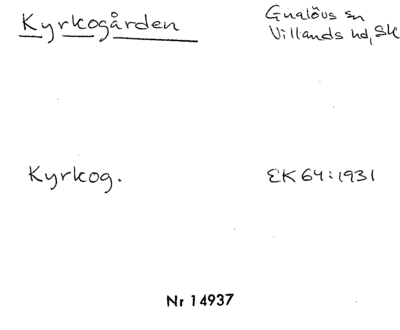 Kyrkogården
Gualövs sn
Villands hd, Sk
Kyrkog.
EK 64:1931
Nr 14937